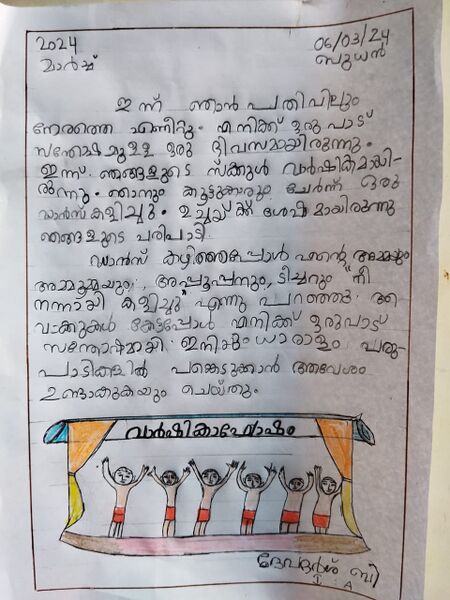 2024
മാർച്ച്
06/03/24
ബുധൻ
ഇന്ന് ഞാൻ പതിവിലും
നേരത്തെ എണീറ്റു. എനിക്ക് ഒരുപാട്
സന്തോഷമുള്ള ഒരു ദിവസമായിരുന്നു.
ഇന്ന് ഞങ്ങളുടെ സ്ക്കൂൾ വാർഷികമായി-
രുന്നു. ഞാനും കൂട്ടുകാരും ചേർന്ന് ഒരു
ഡാൻസ് കളിച്ചു. ഉച്ചയ്ക്ക് ശേഷമായിരുന്നു
ഞങ്ങളുടെ പരിപാടി.
ഡാൻസ് കഴിഞ്ഞപ്പോൾ എന്റെ അമ്മയും
അമ്മൂമ്മയും, അപ്പൂപ്പനും, ടീച്ചറും "നീ
നന്നായി കളിച്ചു" എന്നു പറഞ്ഞു. ആ
വാക്കുകൾ കേട്ടപ്പോൾ എനിക്ക് ഒരുപാട്
സന്തോഷമായി. ഇനിയും ധാരാളം പരി-
പാടികളിൽ പങ്കെടുക്കാൻ ആവേശം
ഉണ്ടാകുകയും ചെയ്തു.
വാർഷികാഘോഷം
ദേവദർശ് ബി
I A